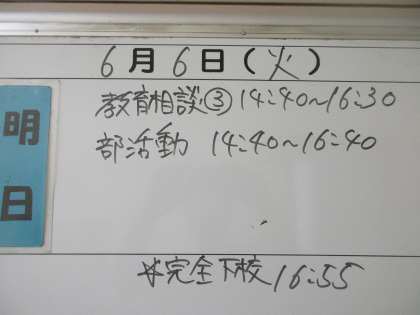 6月6日(火)
明日
教育相談③ 14:40~16:30
部活動 14:40~16:40
*完全下校 16:55